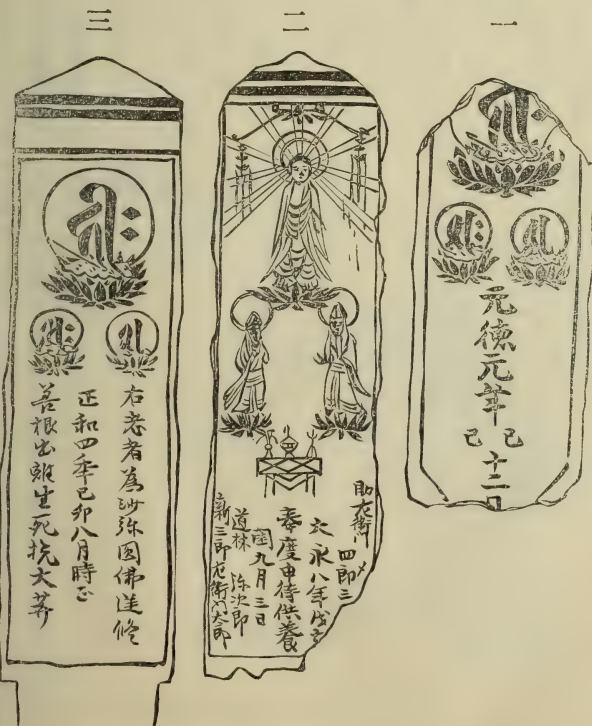 一
元徳元年己巳十二
二
助左衛門 四郎三
大永八年戊子
奉庚申待供養
閏九月三日
道林 弥次郎
新三郎左衛門太郎
三
右志者為沙弥圓佛逆修
正和四年乙卯八月時正
善根出離生死